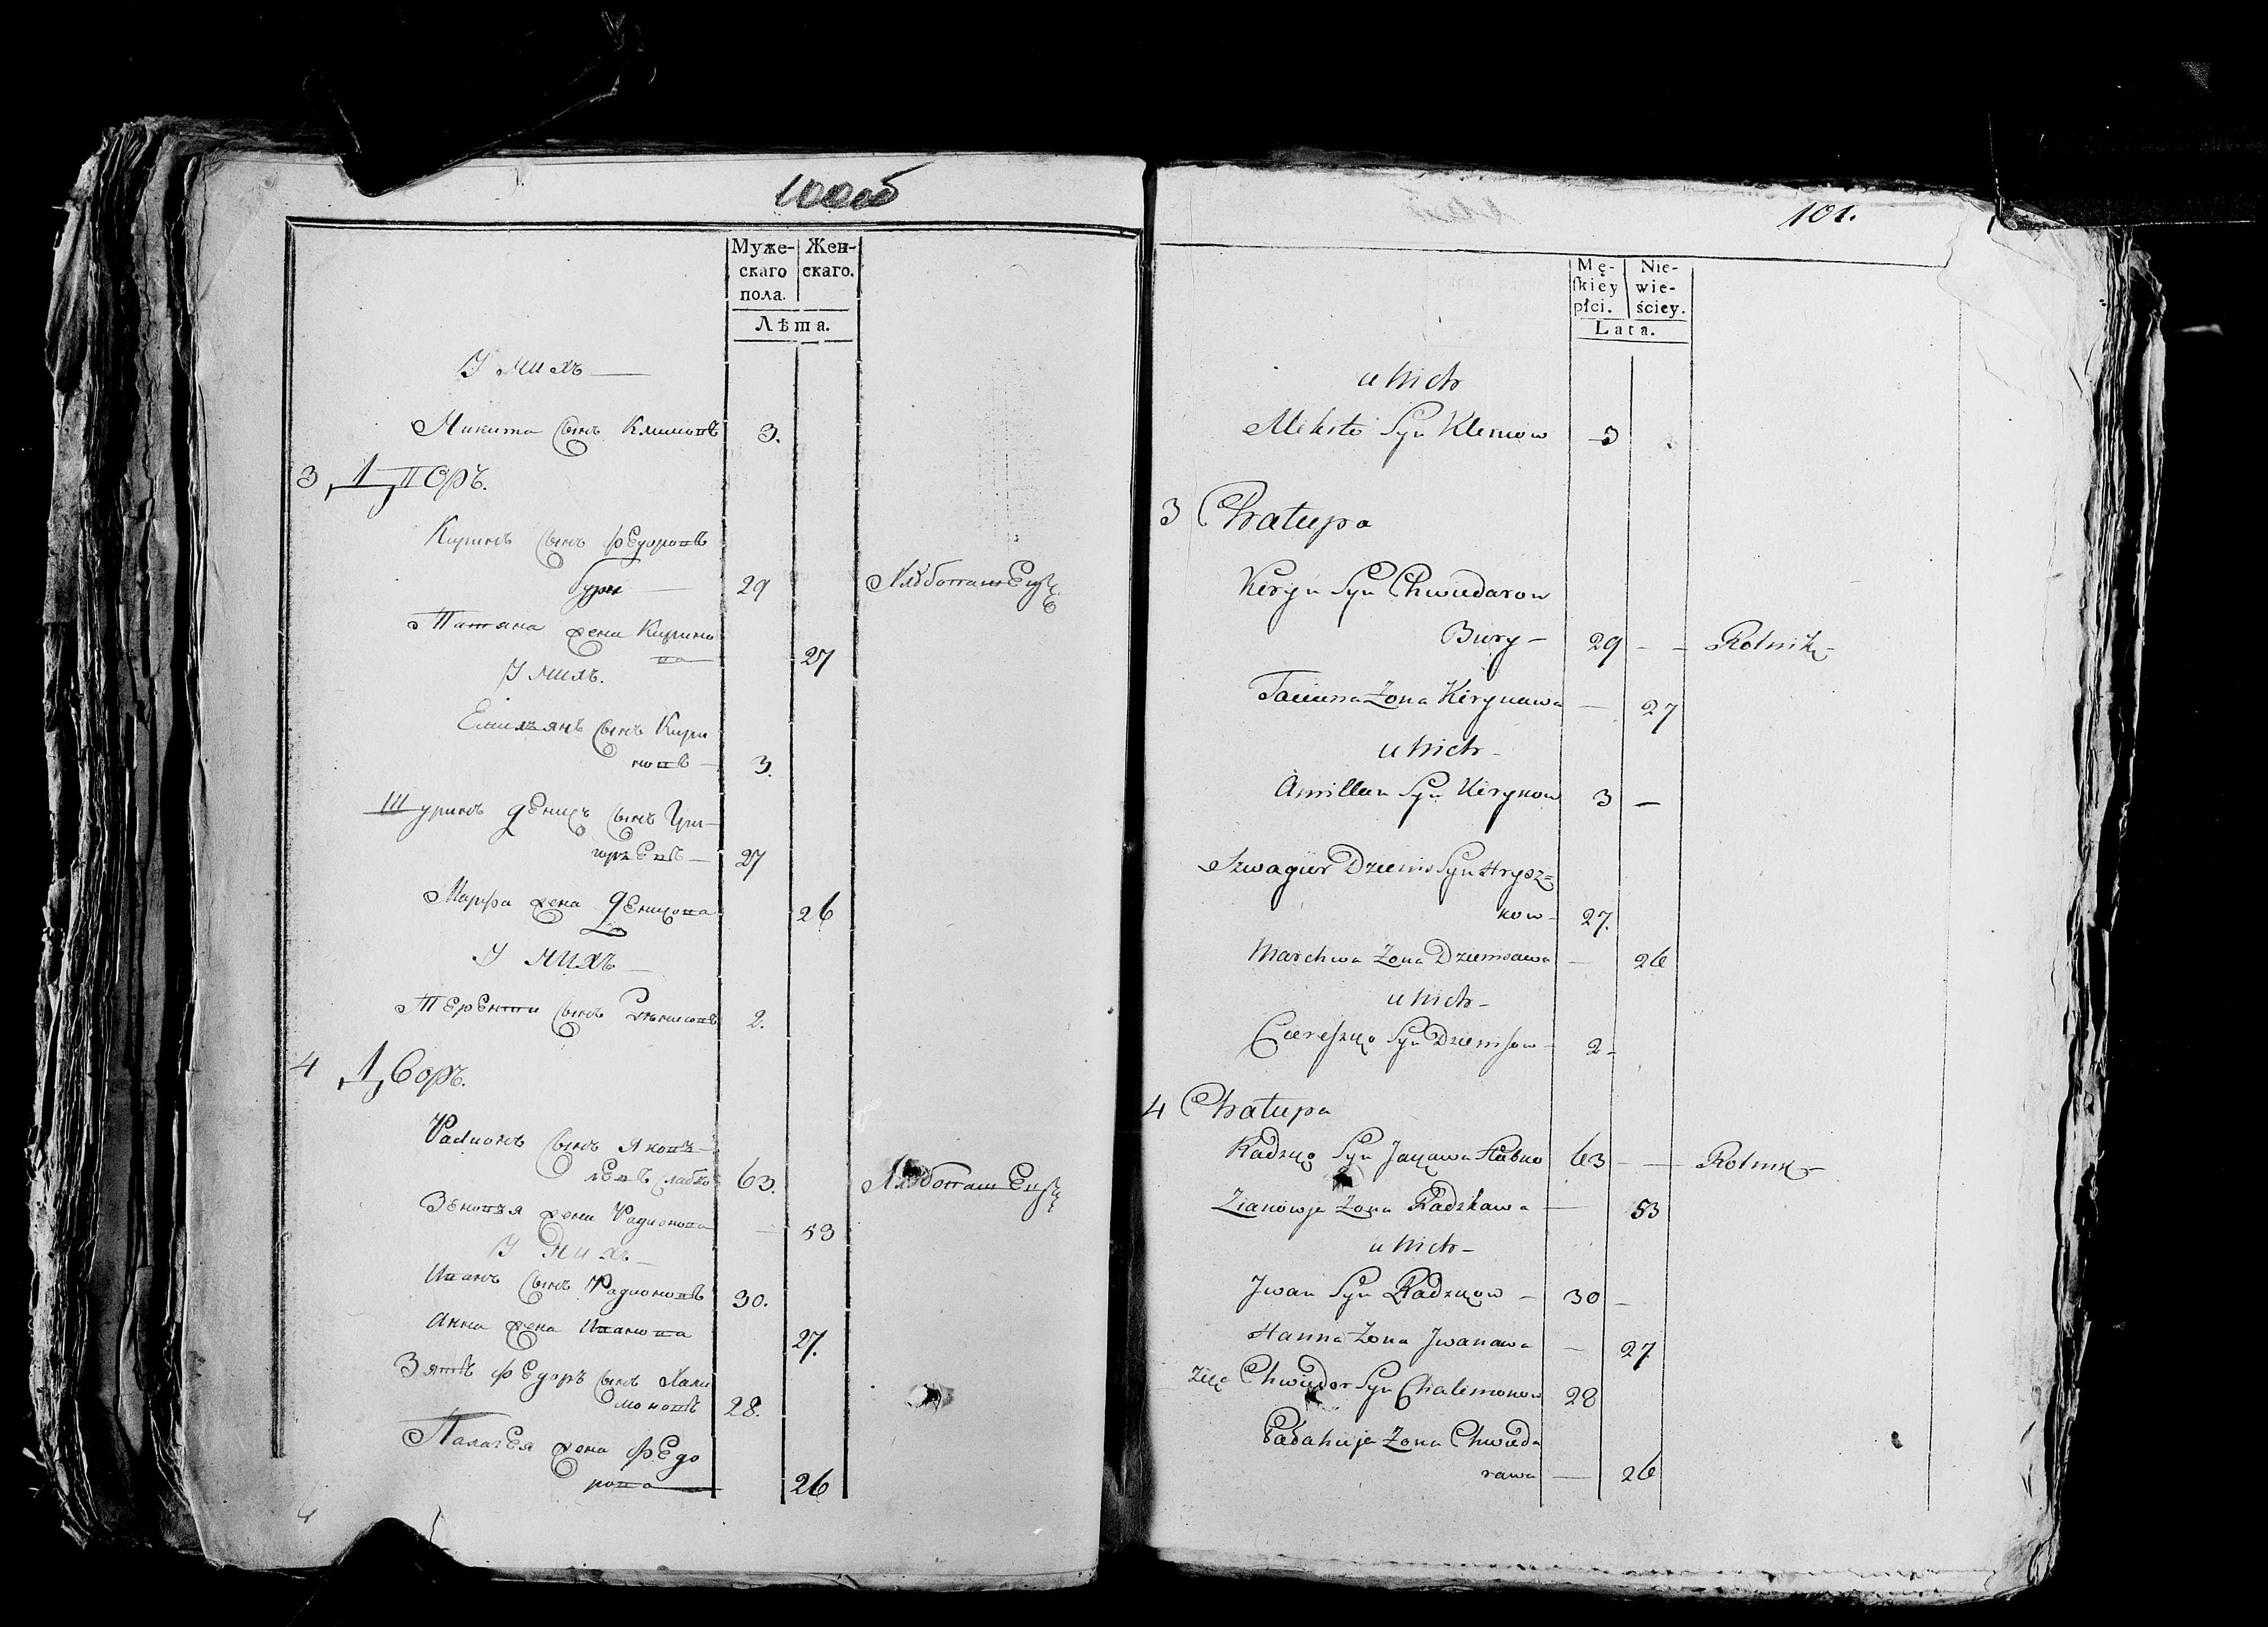 100об
Муже-
скаго
пола.
Жен-
скаго.
Лѣта.
У нихъ —
Микита сынъ Климовъ 3.
3 Дворъ.
Киринъ сынъ Федоровъ
Буры — 29 Хлѣбопашецъ
Татяна жена Кирино
ва 27
У нихъ.
Емильянъ сынъ Кири
новъ — 3.
Шуринъ Денисъ сынъ Гри-
горьевъ — 27
Марфа жена Денисова 26
У нихъ —
Терентий сынъ Денисовъ 2.
4 Дворъ.
Радионъ сынъ Яковъ-
левъ Слабко 63. Хлѣбопашецъ
Зеновья жена Радионова — 53
У нихъ —
Иванъ сынъ Радионовъ 30.
Анна жена Иванова 27.
Зять Федоръ сынъ Хали
моновъ 28.
Палагея жена Федо
рова — 26
101.
Mę-
skiey
płci.
Nie-
wie-
ściey.
Lata.
u Nich
Mikita Syn Klemow 3
3 Chałupa
Keryn Syn Chwiedarow
Bury — 29 — — Rolnik —
Taciana Zona Kerynawa — 27
u Nich —
Amillan Syn Kirynow 3 —
Szwagier Dzienis Syn Hrysz=
kow — 27.
Marchwa Zona Dziemsawa — 26
u Nich —
Ciareszko Syn Dzienisow — 2 —
4 Chałupa
Radzko Syn Jackawa Słabko 63 — — Rolnik —
Zianowja Zona Radzkawa — 53
u Nich —
Jwan Syn Radzkow — 30 —
Hanna Zona Jwanawa — 27
Zięć Chwiedor Syn Chalimonow 28
Pałahieja Zona Chwieda
rawa — 26